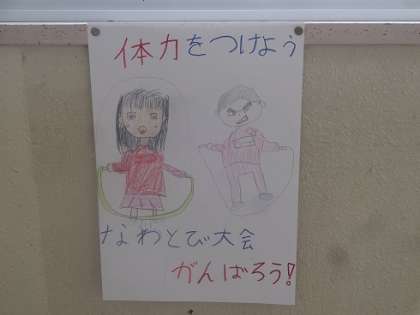 体力をつけよう
なわとび大会
がんばろう!